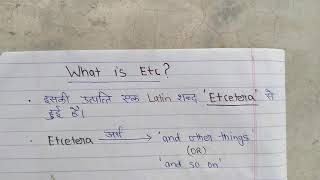 What is Etc?
• इसकी उत्पत्ति एक Latin शब्द 'Etcetera' से
हुई है।
• Etcetera अर्थ 'and other things'
(OR)
'and so on'